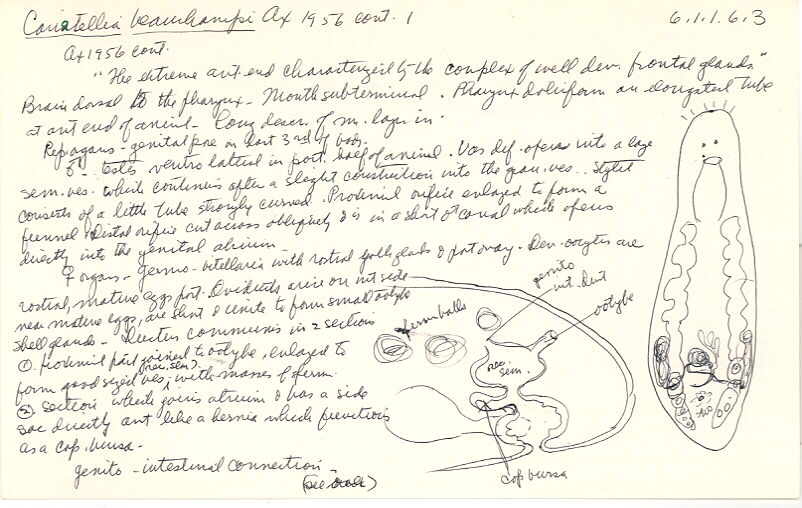 Coriatellia beauchampi Ax 1956 cont. 1
6.1.1.6.3
Ax 1956 cont.
"The extreme ant. end characterized by the complex of well dev. frontal glands."
Brain dorsal to the pharynx - Mouth subterminal. Pharynx doliiform an elongated tube
at ant end of animal - Long descr. of m. layer in -
Rep. organs - genital pore in last 3rd of body.
♂ - testes ventro lateral in post. half of animal. Vas def. opens into a large
sem. ves. which continues after a slight constriction into the gran. ves. - Stylet
consists of a little tube strongly curved. Proximal orifice enlaged to form a
funnel. Distal orifice cut across obliquely & is in a short ♂ canal which opens
directly into the genital atrium -
♀ organs - germo-vitellaria with rostral yolk glands & post ovary. Dev. oocytes are
rostral, mature eggs post. Oviducts arise on int side
near mature eggs, are short & unite to form small ootype
Shell glands - Ductus communis in 2 sections
① proximal part joined to ootype, enlaged to
(rec. sem.)
form good sized ves, with masses of sperm.
② section which joins atrium & has a side
sac directly ant like a hernia which functions
as a cop. bursa -
genito - intestinal connection -
(see over)
sperm balls
genito
int. duct
ootype
rec.
sem.
cop bursa